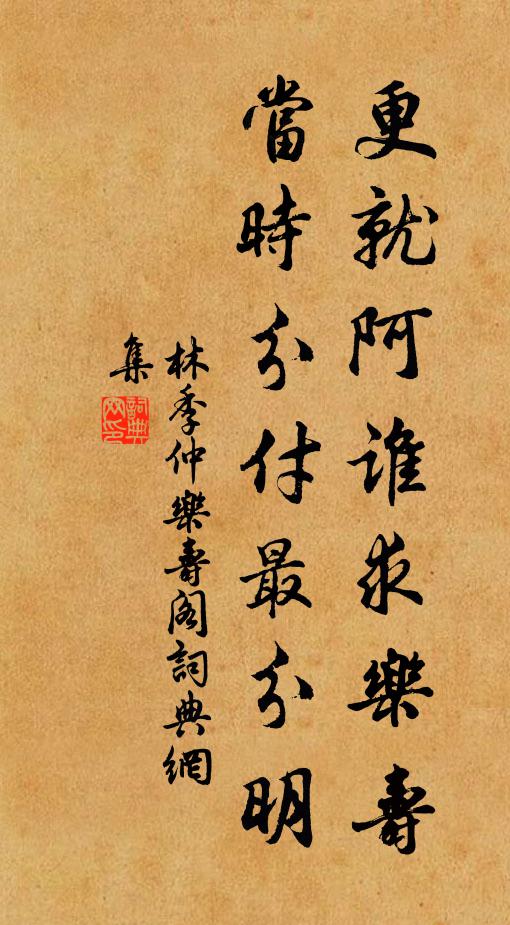 更就阿谁求樂壽
當時分付最分明
林季仲樂壽阁詞典網
集
詞典
网印